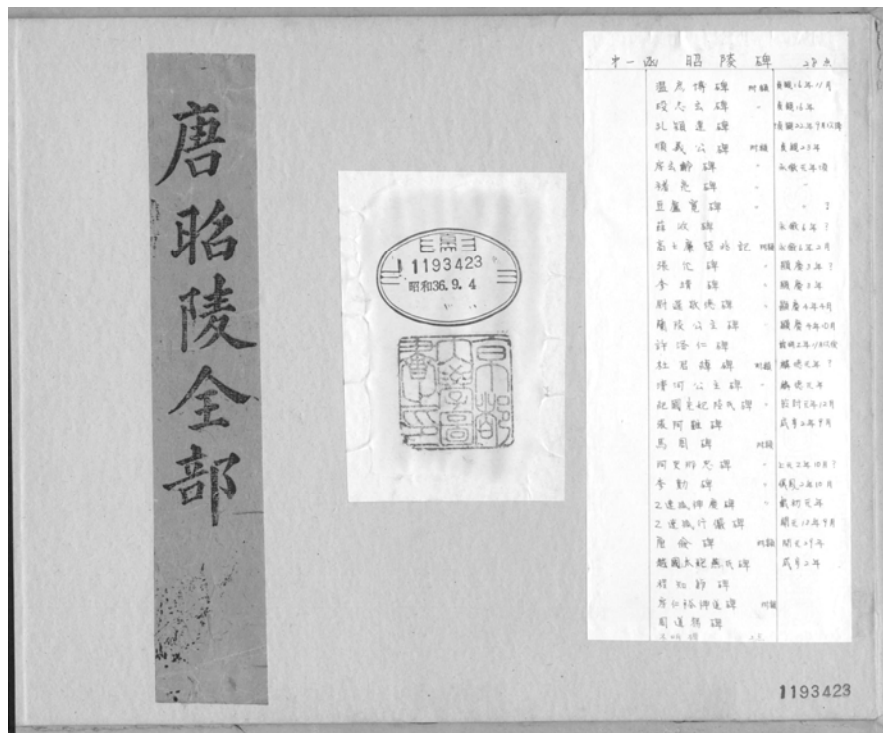 唐昭陵全部
1193423
昭和36.9.4
京都
大學圖
書之印
第一函 昭陵碑 28点
温彦博碑 附額 貞観16年11月
段志玄碑 〃 貞観16年
孔穎達碑 貞観22年9月以降
順義公碑 附額 貞観23年
房玄齢碑 〃 永徽元年頃
褚亮碑 〃 〃
豆盧寛碑 〃 〃 ?
薛收碑 永徽6年?
高士廉塋兆記 附額 永徽6年2月
張允碑 〃 顕慶3年?
李靖碑 〃 顕慶3年
尉遅敬徳碑 〃 顕慶4年4月
蘭陵公主碑 〃 顕慶4年10月
許洛仁碑 龍朔2年11月以後
杜君綽碑 附額 麟徳元年?
清河公主碑 〃 麟徳元年
紀國先妃陸氏碑 〃 乾封元年12月
張阿難碑 咸亨2年9月
馬周碑 附額
阿史那忠碑 〃 上元2年10月?
李勣碑 〃 儀鳳2年10月
乙速孤神慶碑 〃 載初元年
乙速孤行儼碑 開元13年9月
唐倹碑 附額 開元29年
越國太妃燕氏碑 咸亨2年
程知節碑
房仁裕神道碑 附額
周道務碑
1193423